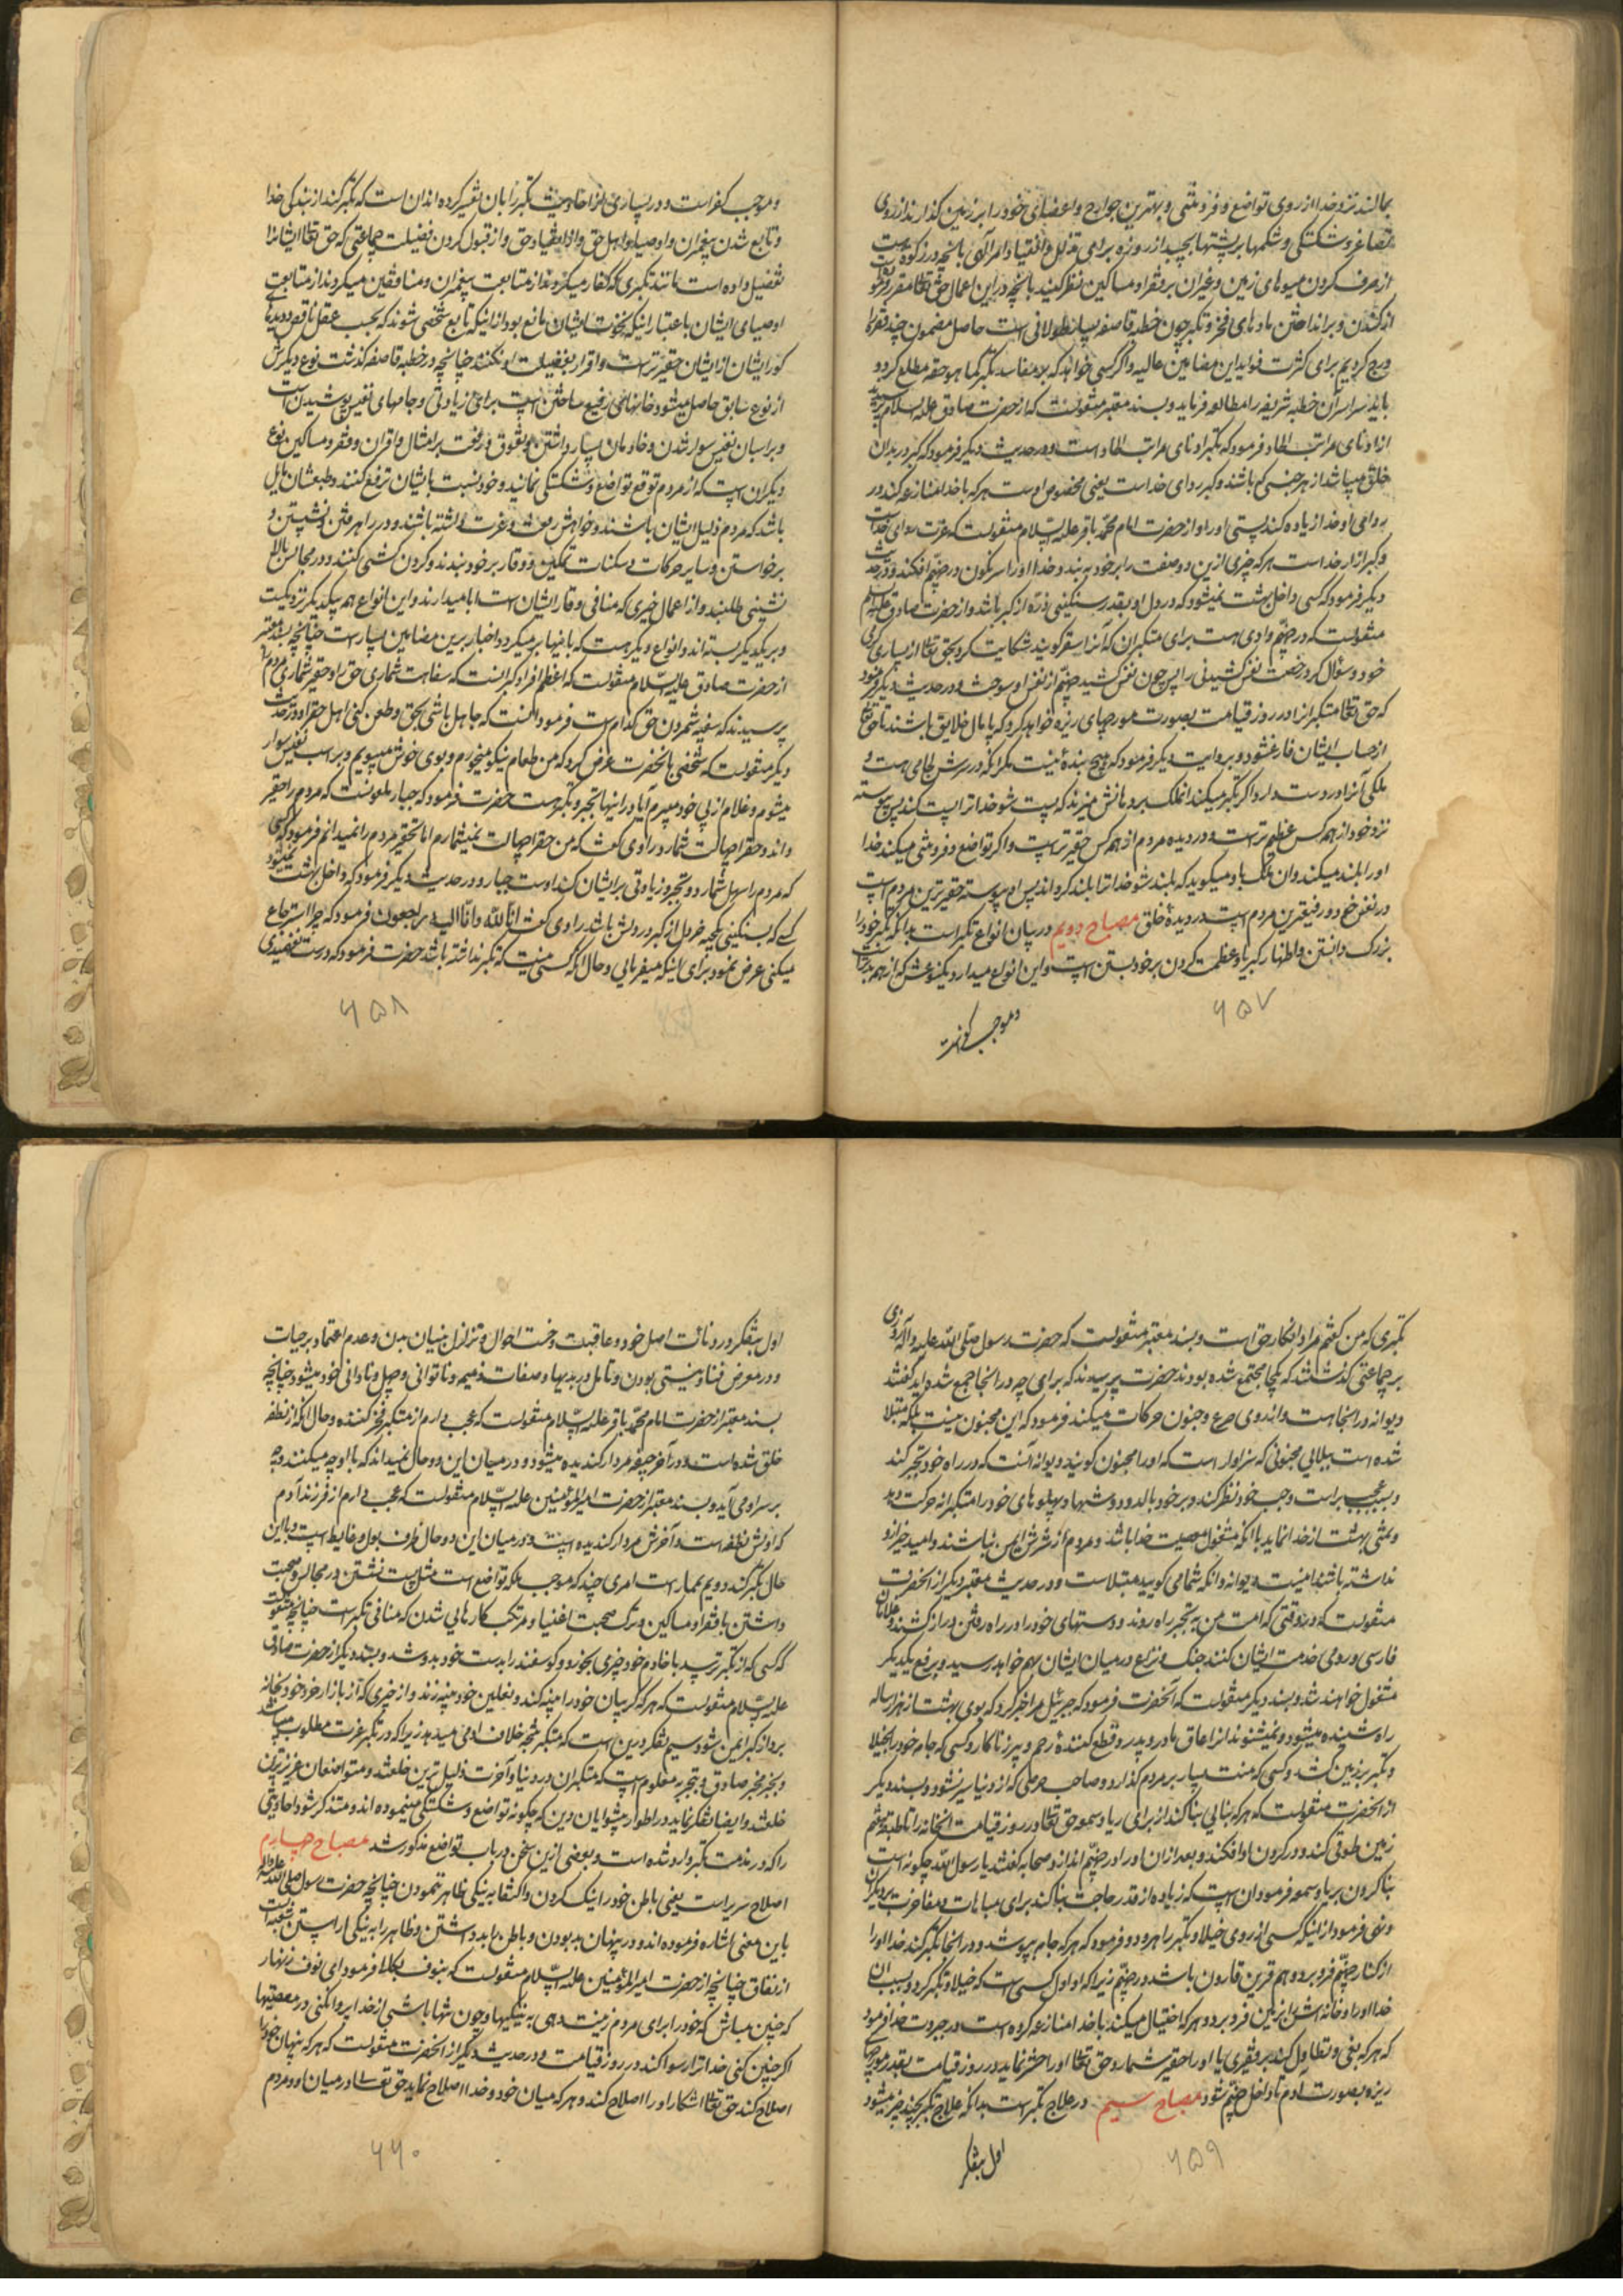 بمالند نزد خدا از روی تواضع و فروتنی و بهترین جوارح و اعضای خود را بر زمین گذارند از روی
تصاغر و شکستگی و شکمها بر پشتها بچسبد از روزه برای تذلل و انقیاد امر الهی با آنچه در زکوة هست
از صرف کردن میوهای زمین و غیر آن بر فقرا و مساکین نظر کنید بآنچه در این اعمال حق تعالی مقرر فرموده
از کشتن و برانداختن مادهای فخر و تکبر چون خطبه قاصفه بسیار طولانی است حاصل مضمون چند فقره را
درج کردیم برای کثرت فواید این مضامین عالیه و اگر کسی خواهد که بر مفاسد تکبر کما هو حقه مطلع گردد
باید سراسر آن خطبه شریفه را مطالعه فرماید و بسند معتبر منقولست که از حضرت صادق علیه السلام پرسیدند
از ادنای مراتب الحاد فرمود که تکبر ادنای مراتب الحاد است و در حدیث دیگر فرمود که کبر در بدان
خلق میباشد از هر جنسی که باشند و کبر ردای خداست یعنی مخصوص اوست هر که با خدا منازعه کند در
ردای او خدا زیاده کند پستی او را و از حضرت امام محمد باقر علیه السلام منقولست که عزت ردای خداست
و کبر ازار خداست هر که چیزی ازین دو صفت را بر خود به بندد خدا او را سرنگون در جهنم افکند و در حدیث
دیگر فرمود که کسی داخل بهشت نمیشود که در دل او بقدر سنگینی ذره از کبر باشد و از حضرت صادق علیه السلم
منقولست که در جهنم وادی هست برای متکبران که آنرا سقر گویند شکایت کرد بحق تعالی از بسیاری گرمی
خود و سؤال کرد رخصت نفس کشیدنی را پس چون نفس کشید جهنم از نفس او سوخت و در حدیث دیگر فرمود
که حق تعالی متکبرانرا در روز قیامت بصورت مورچهای ریزه خواهد کرد که پامال خلایق باشند تا حق تعالی
از حساب ایشان فارغ شود و بروایت دیگر فرمود که هیچ بنده نیست مگر آنکه در سرش لجامی هست و
ملکی آنرا در دست دارد اگر تکبر میکند آنملک بر دهانش میزند که پست شو خدا ترا پست کند پس پیوسته
نزد خود از همه کس عظیم تر است و در دیده مردم از همه کس حقیر تر است و اگر تواضع و فروتنی میکند خدا
او را بلند میکند و آن ملک باو میگوید که بلند شو خدا ترا بلند گرداند پس او پیوسته حقیرترین مردم است
در نفس خود و رفیع‌ترین مردم است در دیده خلق مصباح دویم در بیان انواع تکبر است بدانکه تکبر خود را
بزرگ دانستن و اظهار کبریا و عظمت کردن بر خود بستن است و این انواع میدارد یکنوعش که از همه بدتر است
و موجب کفر است
۶۵۷
و موجب کفر است و در بسیاری از احادیث تکبر را بان تفسیر کرده‌اند آن است که تکبر کند از بندگی خدا
و تابع شدن پیغمبران و اوصیا و اهل حق و از انقیاد حق و از قبول کردن فضیلت جماعتی که حق تعالی ایشانرا
تفضیل داده است مانند تکبری که کفار میکردند از متابعت پیغمبران و منافقین میکردند از متابعت
اوصیای ایشان باعتبار اینکه نخوت ایشان مانع بود از اینکه تابع شخصی شوند که بحسب عقل ناقص و دیده
کور ایشان از ایشان حقیر تر است و اقرار بفضیلت او نکنند چنانچه در خطبه قاصفه گذشت نوع دیگرش
از نوع سابق حاصل میشود خانهای رفیع ساختن است برای زیادتی و جامهای نفیس پوشیدن است
و بر اسبان نفیس سوار شدن و خادمان بسیار داشتن و تفوق و رفعت بر امثال و اقران و فقرا و مساکین نوع
دیگر آن است که از مردم توقع تواضع و شکستگی نمایند و خود نسبت بایشان ترفع کنند و طبعشان مایل
باشد که مردم ذلیل ایشان باشند و خواهش رفعت و عزت داشته باشند و در راه رفتن و نشستن و
برخواستن و سایر حرکات و سکنات تمکین و وقار بر خود بندند و گردن کشی کنند و در مجالس بالا
نشینی طلبند و از اعمال خیری که منافی وقار ایشان است ابا میدارند و این انواع هم بیکدیگر نزدیکست
و بر یکدیگر بسته‌اند و انواع دیگر هست که باینها بر میگردد و اخبار برین مضامین بسیار است چنانچه بسند معتبر
از حضرت صادق علیه السلام منقولست که اعظم افراد کبر آنست که سفاهت شماری حق را و حقیر شماری مردم را
پرسیدند که سفیه شمردن حق کدام است فرمود آنست که جاهل باشی بحق و طعن کنی اهل حق را و در حدیث
دیگر منقولست که شخصی بآنحضرت عرض کرد که من طعام نیکو میخورم و بوی خوش میبویم و بر اسب نفیس سوار
میشوم و غلام از پی خود میبرم آیا در اینها تجبر و تکبر هست حضرت فرمود که جبار ملعون آنست که مردم را حقیر
داند و حق را جهالت شمارد راوی گفت که من حق را جهالت نمیشمارم اما تحقیر مردم را نمیدانم فرمود کسی
که مردم را سهل شمارد و تجبر و زیادتی بر ایشان کند اوست جبار و در حدیث دیگر فرمود که داخل بهشت نمیشود
کسی که بسنگینی یکحبه خردل از کبر در دلش باشد راوی گفت انا لله و انا الیه راجعون فرمود که چرا استرجاع
میکنی عرض نمود برای اینکه میفرمائی و حال آنکه کسی نیست که تکبر نداشته باشد حضرت فرمود که درست نفهمیدی
۶۵۸
تکبری که من گفتم مراد انکار حق است و بسند معتبر منقولست که حضرت رسول صلی الله علیه و آله روزی
بر جماعتی گذشتند که یکجا مجتمع شده بودند حضرت پرسیدند که برای چه در اینجا جمع شده‌اید گفتند
دیوانه در اینجاست و از روی صرع و جنون حرکات میکند فرمود که این مجنون نیست بلکه مبتلا
شده است ببلائی مجنونی که سزاوار است که او را مجنون گویند و دیوانه آنست که در راه خود تجبر کند
و بسبب عجب براست و چپ خود نظر کند و بر خود بالد و دوشها و پهلوهای خود را متکبرانه حرکت دهد
و تمنی بهشت از خدا نماید با آنکه مشغول معصیت خدا باشد و مردم از شرش ایمن نباشند و امید خیر ازو
نداشته باشند اینست دیوانه و آنکه شما می‌گویید مبتلاست و در حدیث معتبر دیگر از آنحضرت
منقولست که در وقتی که امت من به تجبر راه روند و دستهای خود را در راه رفتن دراز کشند و غلامان
فارسی و رومی خدمت ایشان کنند جنگ و نزاع در میان ایشان بهم خواهد رسید و برفع یکدیگر
مشغول خواهند شد و بسند دیگر منقولست که آنحضرت فرمود که جبرئیل مرا خبر کرد که بوی بهشت از هزار ساله
راه شنیده میشود و نمیشنوند آنرا عاق مادر و پدر و قطع کننده رحم و پیر زناکار و کسی که جام خود را بخیلا
و تکبر بر زمین کشد و کسی که منت بسیار بر مردم گذارد و صاحب حرصی که از دنیا سیر نشود و بسند دیگر
از آنحضرت منقولست که هر که بنائی بنا کند از برای ریا و سمعه حق تعالی در روز قیامت آنخانه را تا طبقه هفتم
زمین طوقی کند و در گردن او افکند و بعد از آن او را در جهنم اندازد صحابه گفتند یا رسول الله چگونه است
بنا کردن بریا و سمعه فرمود آن است که زیاده از قدر حاجت بنا کند برای مباهات و مفاخرت بر دیگران
و نهی فرمود از اینکه کسی از روی خیلا و تکبر راه رود و فرمود که هر که جامه بپوشد و در آنجا تکبر کند خدا او را
از کنار جهنم فرو برد و هم قرین قارون باشد در جهنم زیرا که او اول کسی است که خیلا و تکبر کرد و بسبب آن
خدا او را و خانه‌اش را بزمین فرو برد و هر که اختیال میکند با خدا منازعه کرده است در جبروت خدا فرمود
که هر که بغی و تطاول کند بر فقیری یا او را حقیر شمارد حق تعالی او را حشر نماید در روز قیامت بقدر مورچهای
ریزه بصورت آدم تا داخل جهنم شود مصباح سیم در علاج تکبر است بدانکه علاج تکبر بچند چیز میشود
اول بتفکر
۶۵۹
اول بتفکر در دنائت اصل خود و عاقبت و خست احوال و تزلزل بنیان بدن و عدم اعتماد بر حیات
و در معرض فنا و نیستی بودن و تامل در بدیها و صفات ذمیمه و ناتوانی و جهل و نادانی خود میشود چنانچه
بسند معتبر از حضرت امام محمد باقر علیه السلام منقولست که عجب دارم از متکبر فخر کننده و حال آنکه از نطفه
خلق شده است و در آخر جیفه مردار گندیده میشود و در میان این دو حال نمیداند که با او چه میکنند و چه
بر سر او می‌آید و بسند معتبر از حضرت امیر المؤمنین علیه السلام منقولست که عجب دارم از فرزند آدم
که اولش نطفه است و آخرش مردار گندیده است و در میان این دو حال ظرف بول و غایط است و با این
حال تکبر کند دویم بممارست امری چند که موجب ملکه تواضع است مثل پست نشستن در مجالس و صحبت
داشتن با فقرا و مساکین و ترک صحبت اغنیا و مرتکب کارهایی شدن که منافی تکبر است چنانچه منقولست
که کسی که از تکبر ترسد با خادم خود چیزی بخورد و گوسفند را بدست خود بدوشد و بسند دیگر از حضرت صادق
علیه السلام منقولست که هر که گریبان خود را پینه کند و نعلین خود پینه زند و از چیزی که از بازار خرد خود بخانه
برد از کبر ایمن شود سیم تفکر درین است که متکبر نتیجه خلاف او می‌دهد زیرا که در تکبر عزت مطلوب میباشد
و بخبر مخبر صادق و بتجربه معلوم است که متکبران در دنیا و آخرت ذلیل‌ترین خلقند و متواضعان عزیزترین
خلقند و ایضا تفکر نماید در اطوار پیشوایان دین که چگونه تواضع و شکستگی مینموده‌اند و متذکر شود احادیثی
را که در مذمت تکبر وارد شده است و بعضی ازین سخن در باب تواضع مذکور شد مصباح چهارم
اصلاح سریر است یعنی باطن خود را نیک کردن و اکتفا به نیکی ظاهر ننمودن چنانچه حضرت رسول صلی الله علیه و آله
باین معنی اشاره فرموده‌اند و در پنهان بد بودن و باطن را بد داشتن و ظاهر را به نیکی آراستن شعبه است
از نفاق چنانچه از حضرت امیر المؤمنین علیه السلام منقولست که بنوف بکالی فرمود ای نوف زنهار
که چنین مباش که خود را برای مردم زینت دهی به نیکیها و چون تنها باشی از خدا پروا نکنی در معصیتها
اگر چنین کنی خدا ترا رسوا کند در روز قیامت و در حدیث دیگر از آنحضرت منقولست که هر که پنهان خود را
اصلاح کند حق تعالی آشکار او را اصلاح کند و هر که میان خود و خدا اصلاح نماید حق تعالی در میان او و مردم
۶۶۰